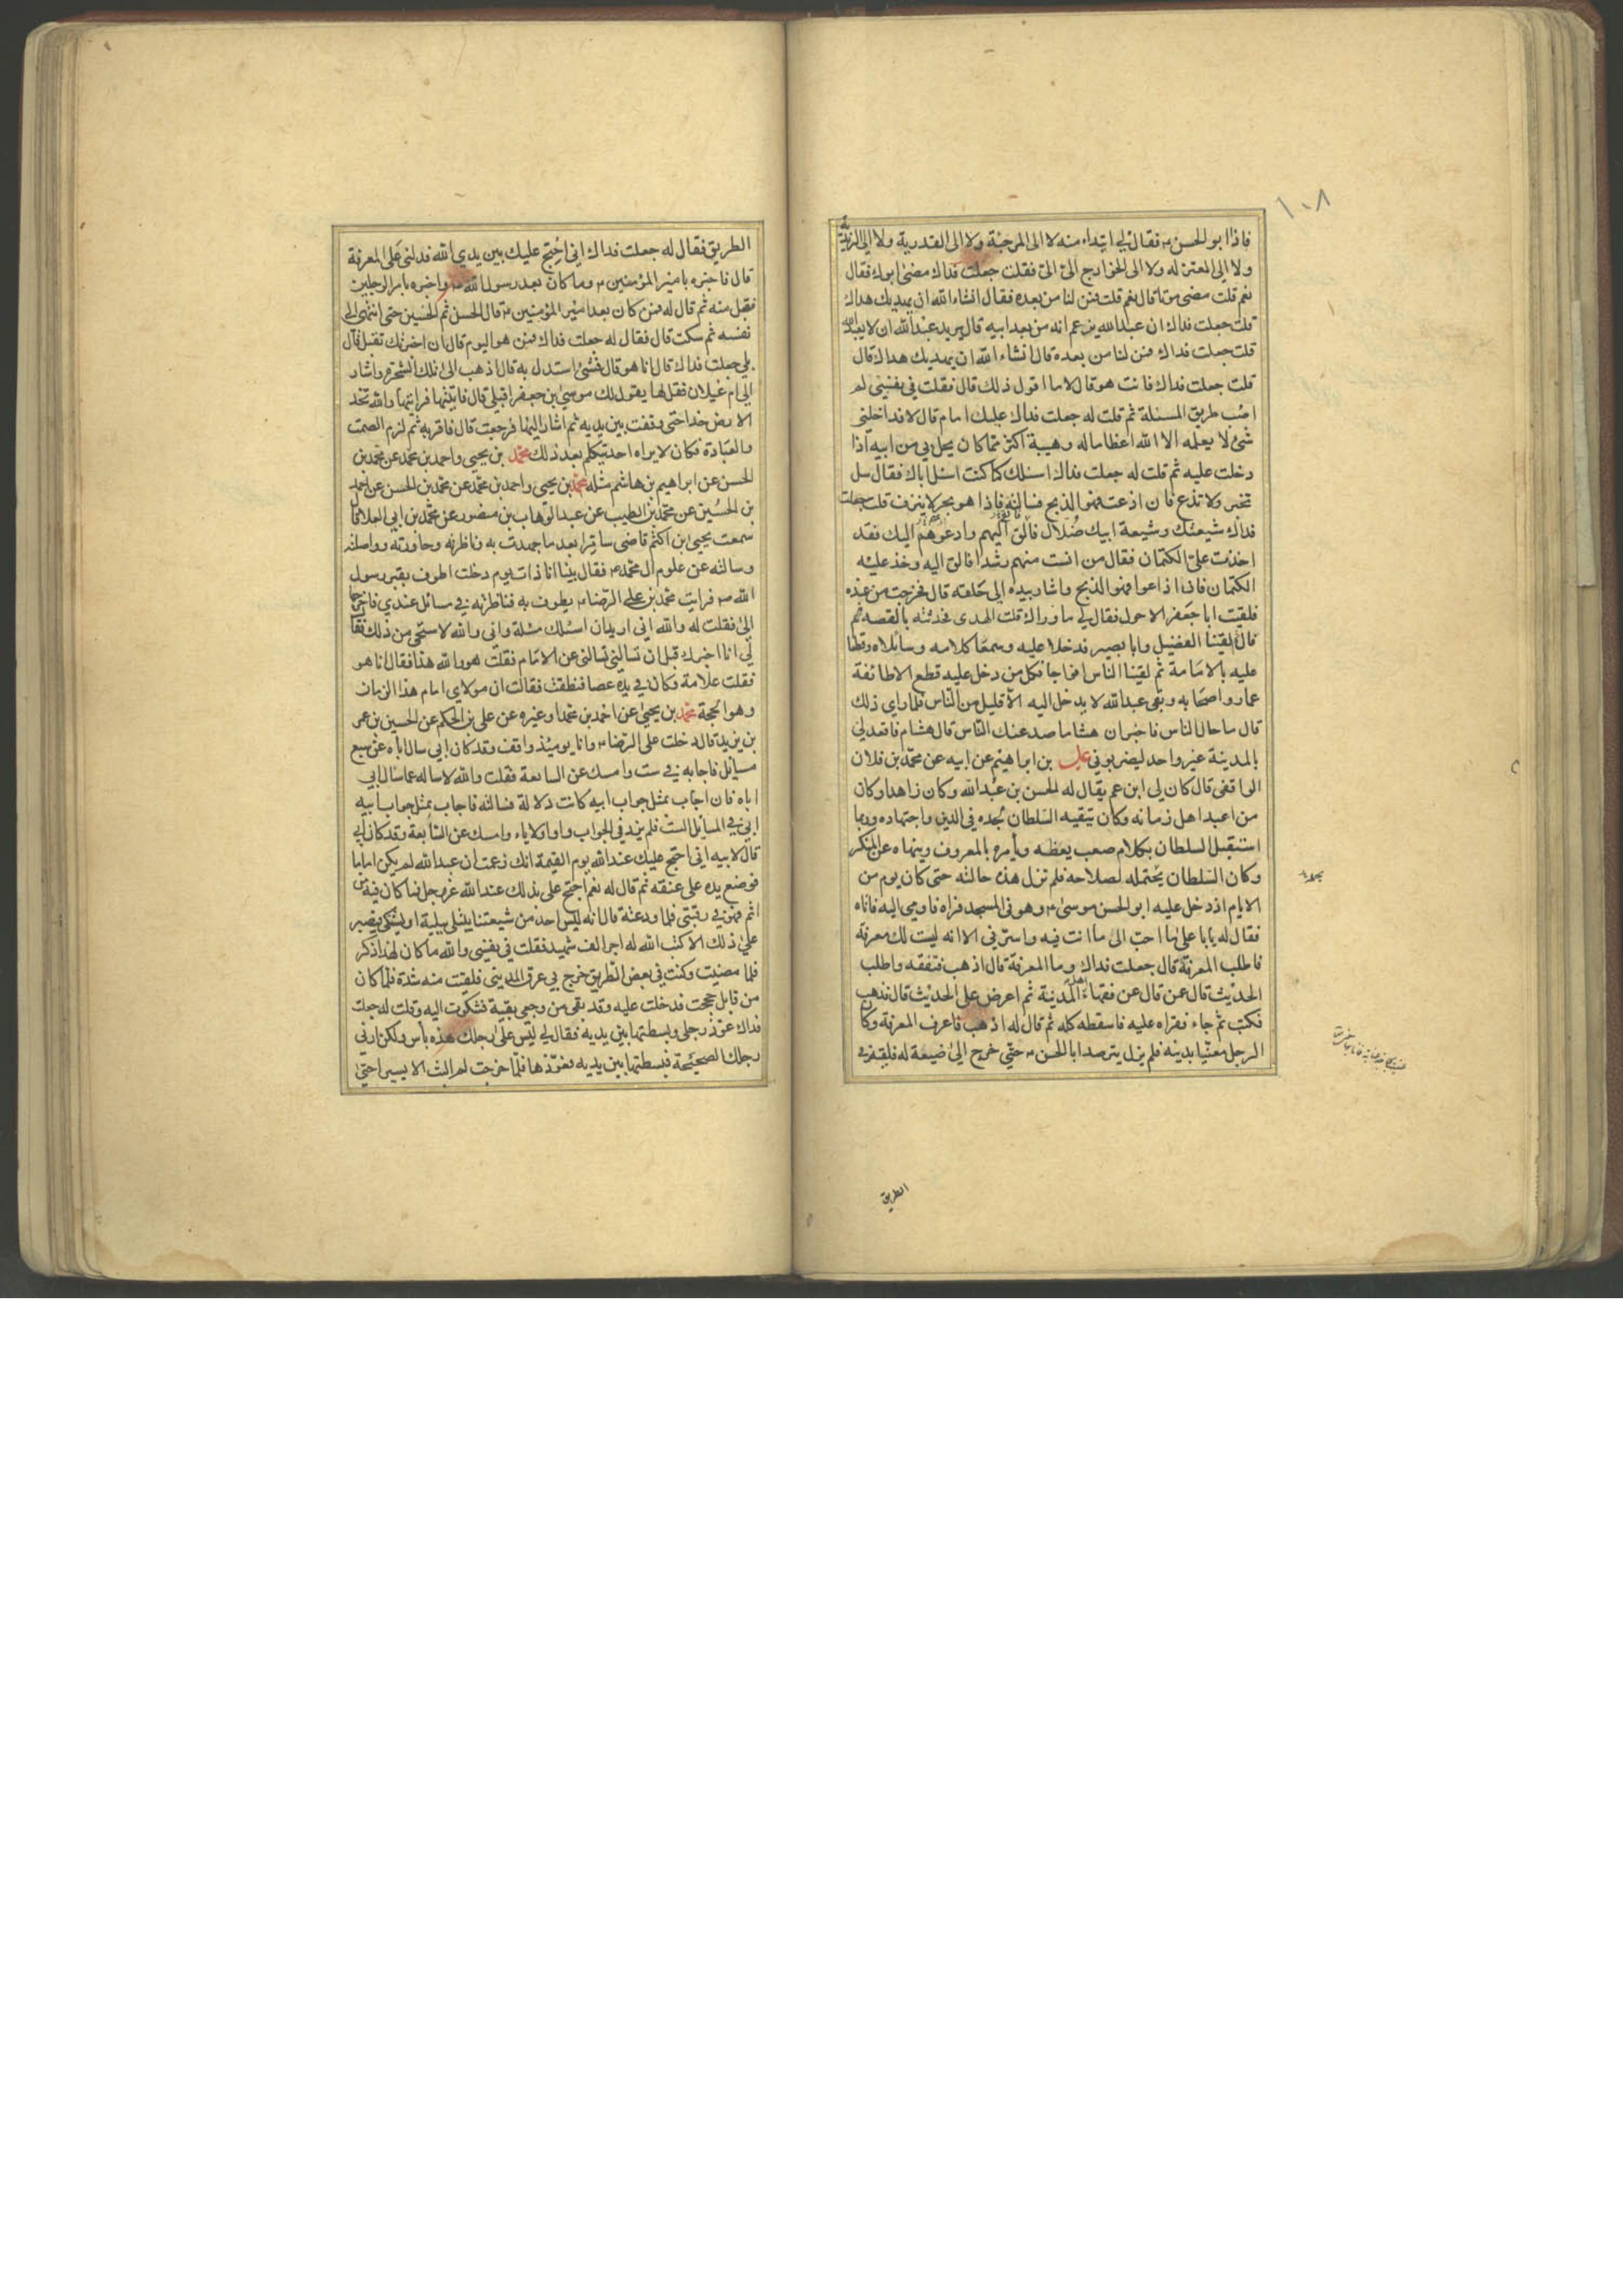 ١٠٨
فاذا ابو الحسن ع فقال لي ابتداء منه لا الى المرجئة ولا الى القدرية ولا الى الزيدية
ولا الى المعتزله ولا الى الخوارج الىّ الىّ فقلت جعلت فداك مضى ابوك فقال
نعم قلت مضى موتا قال نعم قلت فمن لنا من بعده فقال انشاء الله ان يهديك هداك
قلت جعلت فداك ان عبدالله يزعم انه من بعد ابيه قال يريد عبدالله ان لا يعبد الله
قلت جعلت فداك فمن لنا من بعده قال انشاء الله ان يهديك هداك قال
قلت جعلت فداك فانت هو قال لا ما اقول ذلك قال فقلت في نفسي لم
اصب طريق المسئلة ثم قلت له جعلت فداك عليك امام قال لا فداخلني
شئ لا يعلمه الا الله اعظاما له وهيبة اكثر مما كان يحل بي من ابيه اذا
دخلت عليه ثم قلت له جعلت فداك اسئلك كما كنت اسئل اباك فقال سل
تخبر ولا تذع فان اذعت فهو الذبح فسالته فاذا هو بحر لا ينزف قلت جعلت
فداك شيعتك وشيعة ابيك ضلال فالق اليهم وادعوهم اليك فقد
اخذت علىّ الكتمان فقال من انست منهم رشدا فالق اليه وخذ عليه
الكتمان فاذا اذاعوا فهو الذبح واشار بيده الى حلقه قال فخرجت من عنده
فلقيت ابا جعفر الاحول فقال لي ما وراك قلت الهدى فحدثته بالقصه ثم
قال لقينا الفضيل وابا بصير فدخلا عليه وسمعا كلامه وسائلاه وقطعا
عليه بالامامة ثم لقينا الناس افواجا فكل من دخل عليه قطع الا طائفة
عمار واصحابه وبقى عبدالله لا يدخل اليه الا قليل من الناس فلما راى ذلك
قال ما حال الناس فاخبر ان هشاما صد عنك الناس قال هشام فاقعد لي
بالمدينة غير واحد ليضربوني علي بن ابراهيم عن ابيه عن محمد بن فلان
الواقفى قال كان لي ابن عم يقال له الحسن بن عبدالله وكان زاهدا وكان
من اعبد اهل زمانه وكان يتقيه السلطان لجده في الدين واجتهاده وربما
استقبل السلطان بكلام صعب يعظه ويأمره بالمعروف وينهاه عن المنكر
وكان السلطان يحتمله لصلاحه فلم تزل هذه حالته حتى كان يوم من
الايام اذ دخل عليه ابو الحسن موسى ع وهو في المسجد فراه فاومى اليه فاتاه
فقال له يابا على ما احب الى ما انت فيه واسرّني الا انه ليست لك معرفة
فاطلب المعرفة قال جعلت فداك وما المعرفة قال اذهب فتفقه واطلب
الحديث قال عن قال عن فقهاء اهل المدينة ثم اعرض على الحديث قال فذهب
فكتب ثم جاء فقراه عليه فاسقطه كله ثم قال له اذهب فاعرف المعرفة وكان
الرجل معنيا بدينه فلم يزل يترصد ابا الحسن ع حتى خرج الى ضيعة له فلقيه في
الطريق
الطريق فقال له جعلت فداك اني احتج عليك بين يدي الله فدلني على المعرفة
قال فاخبره بامير المؤمنين ع وما كان بعد رسول الله ص واخبره بامر الرجلين
فقبل منه ثم قال له فمن كان بعد امير المؤمنين ع قال الحسن ثم الحسين حتى انتهى الى
نفسه ثم سكت قال فقال له جعلت فداك فمن هو اليوم قال ان اخبرتك تقبل قال
بلى جعلت فداك قال انا هو قال فشئ استدل به قال اذهب الى تلك الشجرة واشار
الى ام غيلان فقل لها يقول لك موسى بن جعفر اقبلي قال فاتيتها فرايتها والله تخد
الارض خدا حتى وقفت بين يديه ثم اشار اليها فرجعت قال فاقر به ثم لزم الصمت
والعبادة فكان لا يراه احد يتكلم بعد ذلك محمد بن يحيى واحمد بن محمد عن محمد بن
الحسن عن ابراهيم بن هاشم مثله محمد بن يحيى واحمد بن محمد عن محمد بن الحسن عن احمد
بن الحسين عن محمد بن الطيب عن عبدالوهاب بن منصور عن محمد بن ابي العلا قال
سمعت يحيى ابن اكثم قاضى سامرا بعد ما جهدت به وناظرته وحاورته وواصلته
وسالته عن علوم ال محمد ع فقال بينا انا ذات يوم دخلت اطوف بقبر رسول
الله ص فرايت محمد بن على الرضا ع يطوف به فناظرته في مسائل عندي فاخرجها
الىّ فقلت له والله اني اريد ان اسئلك مسئلة واني والله لاستحى من ذلك فقال
لي انا اخبرك قبل ان تسالني تسالني عن الامام فقلت هو والله هذا فقال انا هو
فقلت علامة وكان في يده عصا فنطقت فقالت ان مولاي امام هذا الزمان
وهو الحجة محمد بن يحيى عن احمد بن محمد او غيره عن على بن الحكم عن الحسين بن عمر
بن يزيد قال دخلت على الرضا ع وانا يومئذ واقف وقد كان ابي سال اباه عن سبع
مسائل فاجابه في ست وامسك عن السابعة فقلت والله لاساله عما سال ابي
اباه فان اجاب بمثل جواب ابيه كانت دلالة فسالته فاجاب بمثل جواب ابيه
ابي في المسائل الست فلم يزد في الجواب واوا ولا ياء وامسك عن السابعة وقد كان ابي
قال لابيه اني احتج عليك عند الله يوم القيمة انك زعمت ان عبدالله لم يكن اماما
فوضع يده على عنقه ثم قال له نعم احتج على بذلك عند الله عز وجل فما كان فيه من
اثم فهو في رقبتي فلما ودعته قال انه ليس احد من شيعتنا يبتلى ببلية او يشتكى فيصبر
على ذلك الا كتب الله له اجر الف شهيد فقلت في نفسي والله ما كان لهذا ذكر
فلما مضيت وكنت في بعض الطريق خرج بي عرق المديني فلقيت منه شدة فلما كان
من قابل حججت فدخلت عليه وقد بقى من وجعي بقية فشكوت اليه وقلت له جعلت
فداك عوّذ رجلى وبسطتها بين يديه فقال لي ليس على رجلك هذه بأس ولكن ارني
رجلك الصحيحة فبسطتها بين يديه فعوّذها فلما خرجت لم البث الا يسيرا حتى